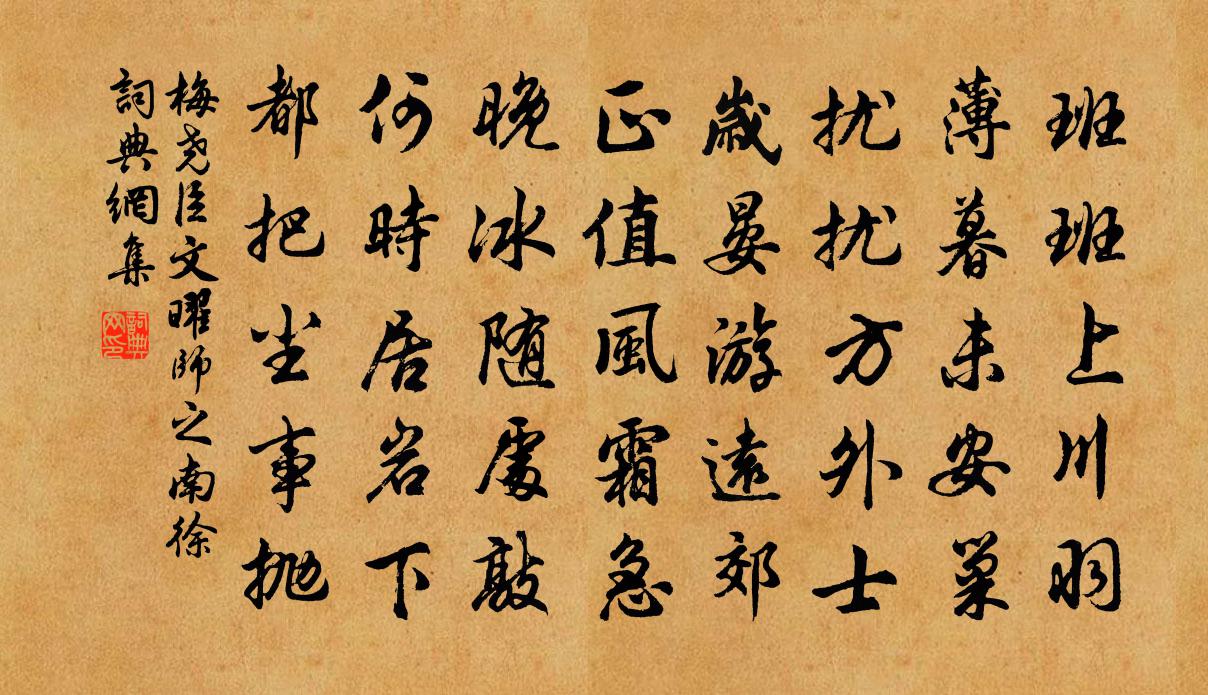 班班上川羽
薄暮未安巢
扰扰方外士
歳晏游遠郊
正值風霜急
晚冰随處敲
何時居岩下
都把尘事抛
梅尧臣文曜師之南徐
詞典網集
詞典網印